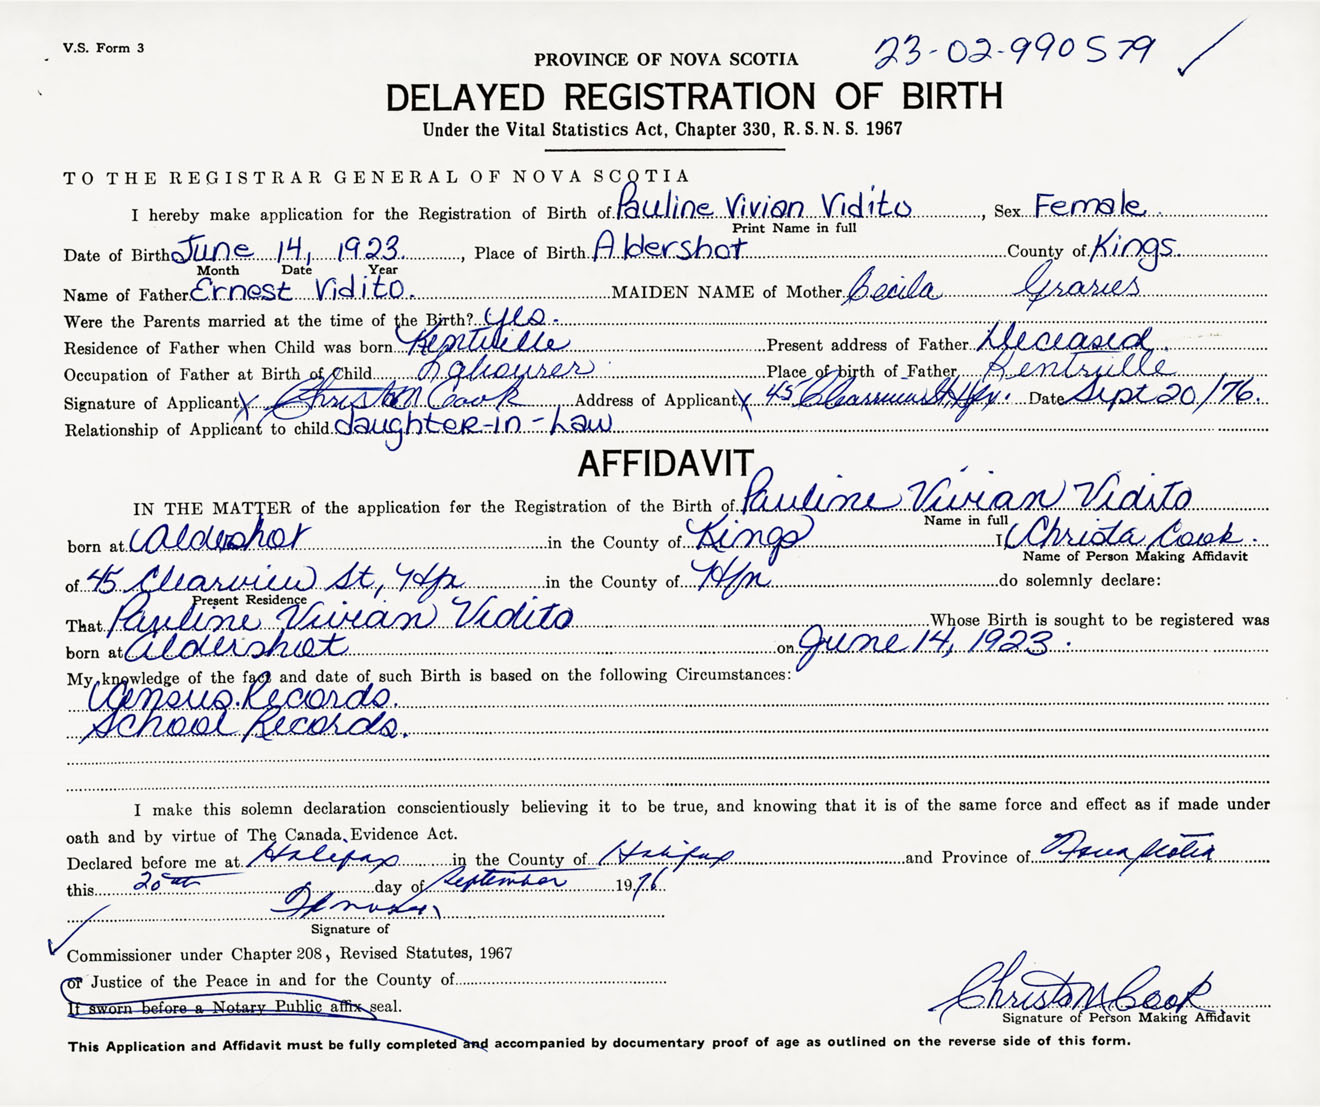 V.S. Form 3
23-02-990579
PROVINCE OF NOVA SCOTIA
DELAYED REGISTRATION OF BIRTH
Under the Vital Statistics Act, Chapter 330, R. S. N. S. 1967
TO THE REGISTRAR GENERAL OF NOVA SCOTIA
I hereby make application for the Registration of Birth of Pauline Vivian Vidito, Sex Female
Print Name in full
Date of Birth June 14, 1923, Place of Birth Aldershot County of Kings
Month Date Year
Name of Father Ernest Vidito. MAIDEN NAME of Mother Cecila Graries
Were the Parents married at the time of the Birth? yes.
Residence of Father when Child was born Kentville Present address of Father Deceased
Occupation of Father at Birth of Child Labourer Place of birth of Father Kentville
Signature of Applicant X Christa M Cook Address of Applicant X 45 Clearview St, Hfx. Date Sept 20/76.
Relationship of Applicant to child daughter-in-Law
AFFIDAVIT
IN THE MATTER of the application for the Registration of the Birth of Pauline Vivian Vidito
Name in full
born at Aldershot in the County of Kings I Christa Cook.
Name of Person Making Affidavit
of 45 Clearview St, Hfx in the County of Hfx do solemnly declare:
Present Residence
That Pauline Vivian Vidito Whose Birth is sought to be registered was
born at Aldershot on June 14, 1923.
My knowledge of the fact and date of such Birth is based on the following Circumstances:
Census Records.
School Records.
I make this solemn declaration conscientiously believing it to be true, and knowing that it is of the same force and effect as if made under
oath and by virtue of The Canada Evidence Act.
Declared before me at Halifax in the County of Halifax and Province of Nova Scotia
this 20th day of September 1976
Signature of
Commissioner under Chapter 208, Revised Statutes, 1967
or Justice of the Peace in and for the County of
If sworn before a Notary Public affix seal.
Christa M Cook
Signature of Person Making Affidavit
This Application and Affidavit must be fully completed and accompanied by documentary proof of age as outlined on the reverse side of this form.